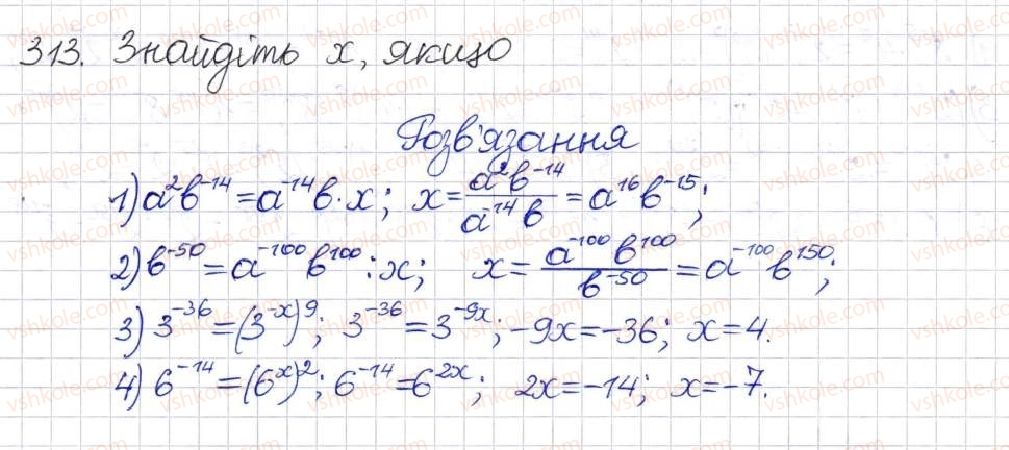 313. Знайдіть x, якщо
Розв'язання
1) a²b⁻¹⁴ = a⁻¹⁴b·x; x = a²b⁻¹⁴/a⁻¹⁴b = a¹⁶b⁻¹⁵;
2) b⁻⁵⁰ = a⁻¹⁰⁰b¹⁰⁰ : x; x = a⁻¹⁰⁰b¹⁰⁰/b⁻⁵⁰ = a⁻¹⁰⁰b¹⁵⁰;
3) 3⁻³⁶ = (3⁻ˣ)⁹; 3⁻³⁶ = 3⁻⁹ˣ; -9x = -36; x = 4.
4) 6⁻¹⁴ = (6ˣ)²; 6⁻¹⁴ = 6²ˣ; 2x = -14; x = -7.